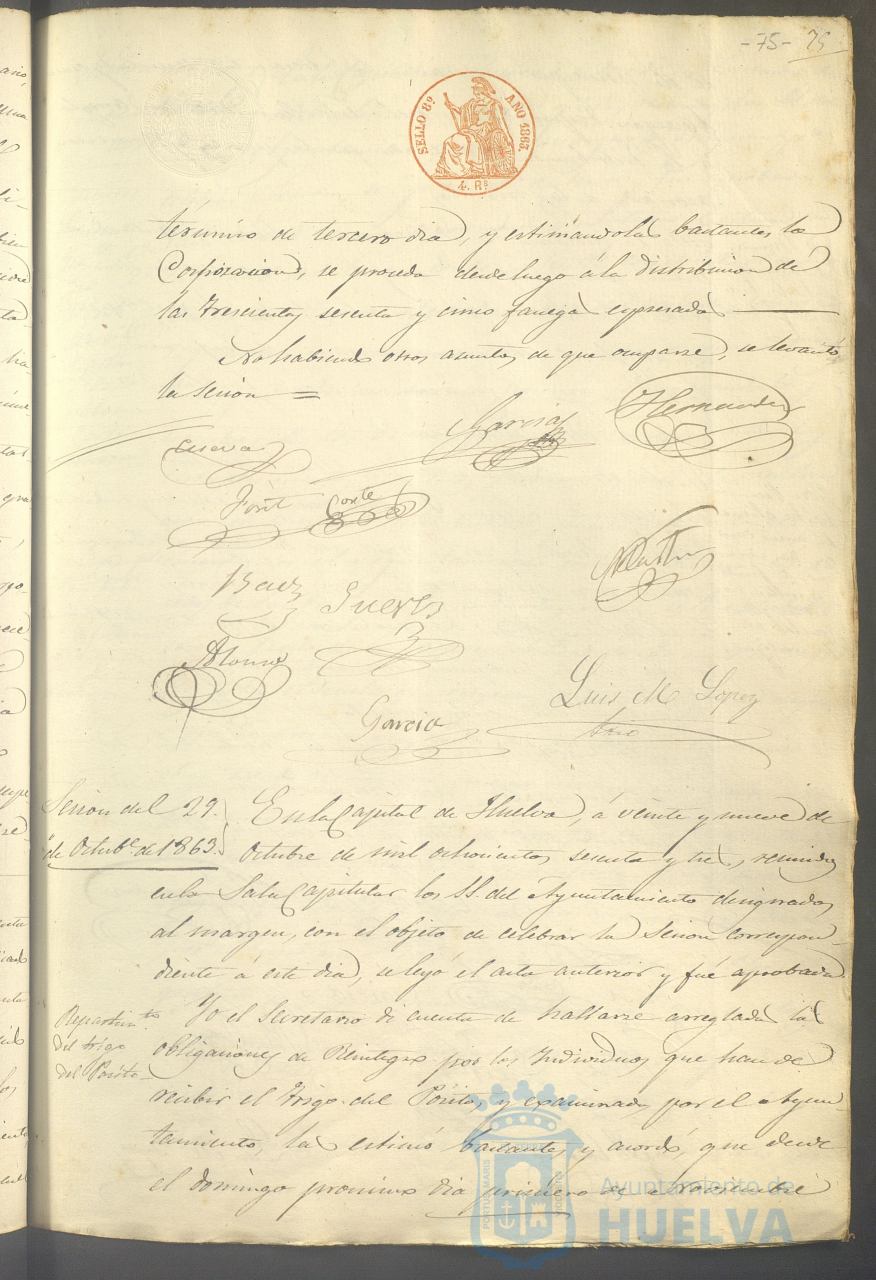 -75- 75
SELLO 8º AÑO 1863.
4. Rs
término de tercero dia, y estimandolas bastantes la
Corporacion, se proceda desde luego á la distribucion de
las trescientas sesenta y cinco fanegas espresadas
No habiendo otros asuntos de que ocuparse, se levantó
la sesion =
Garcia Hernandez
Cueva
Conte
Baez Gueves
Alonso
Luis M Lopez
Garcia
Srio
Sesion del 29. En la Capital de Huelva, á veinte y nueve de
de Octube. de 1863. Octubre de mil ochocientos sesenta y tres, reunidos
en la Sala Capitular los SS. del Ayuntamiento designados
al margen, con el objeto de celebrar la Sesion correspon-
diente á este dia, se leyó el acta anterior y fué aprobada
Repartimto. Yo el Secretario di cuenta de hallarse arregladas las
del trigo obligaciones de Reintegro por los Individuos que han de
del Pósito recibir el trigo del Pósito, y examinadas por el Ayun-
tamiento, las estimó bastantes, y acordó, que desde
el domingo proximo dia primero de Noviembre
PORTUS MARIS
Ayuntamiento de
HUELVA